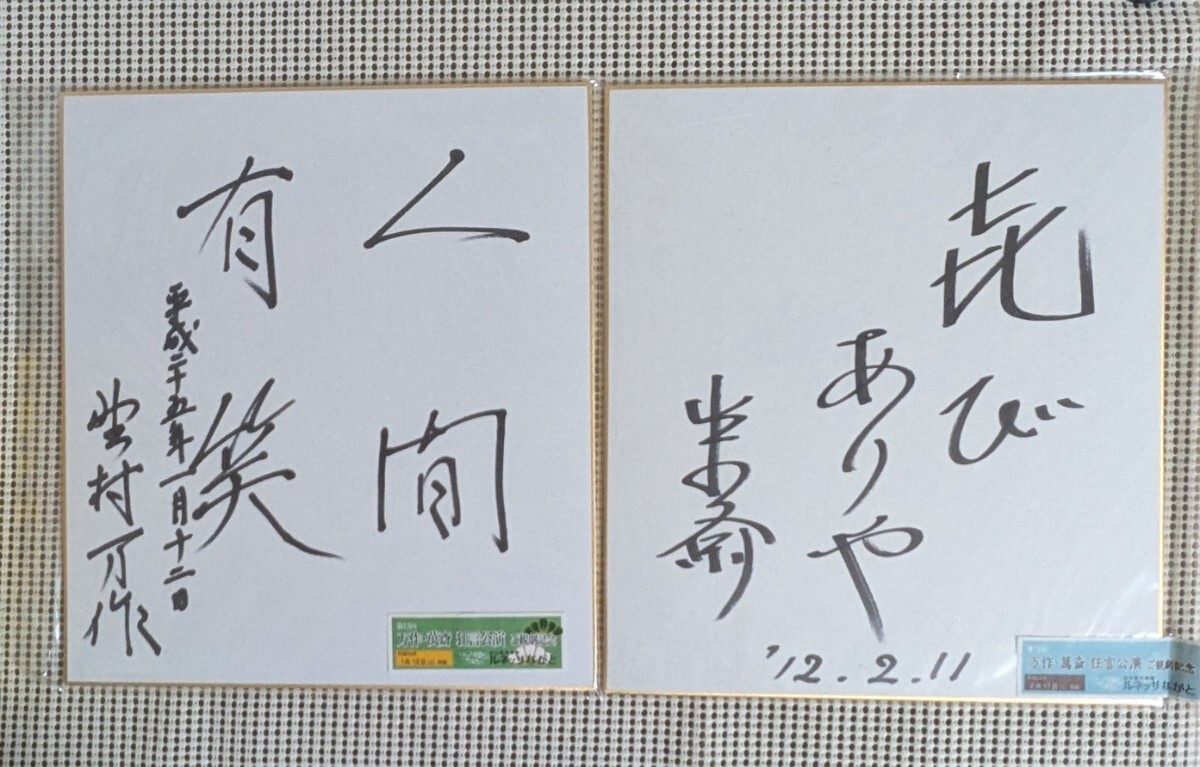 人間
有笑
平成二十五年一月十二日
野村万作
万作・萬斎 狂言公演 ご観劇記念
1月12日(土)
ルネッサながと
㐂び
ありや
萬斎
'12.2.11
万作・萬斎 狂言公演 ご観劇記念
2月11日
ルネッサながと